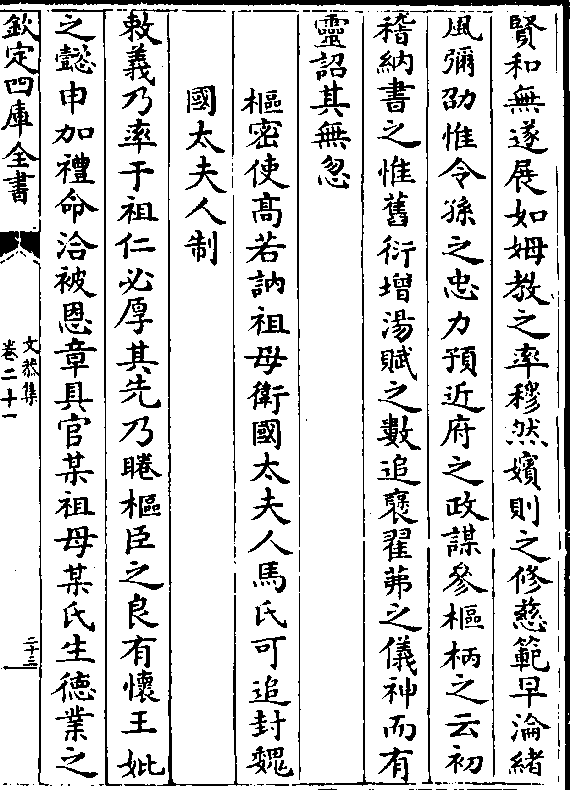 賢和無遂展如姆教之率穆然嬪則之修慈範早淪緒
風彌劭惟令孫之忠力預近府之政謀參樞柄之云初
稽納書之惟舊衍增湯賦之數追襃翟茀之儀神而有
靈詔其無忽
樞密使髙若訥祖母衛國太夫人馬氏可追封魏
國太夫人制
敕義乃率于祖仁必厚其先乃睠樞臣之良有懷王妣
之懿申加禮命洽被恩章具官某祖母某氏生徳業之
欽定四庫全書
文恭集
卷二十一
二十三